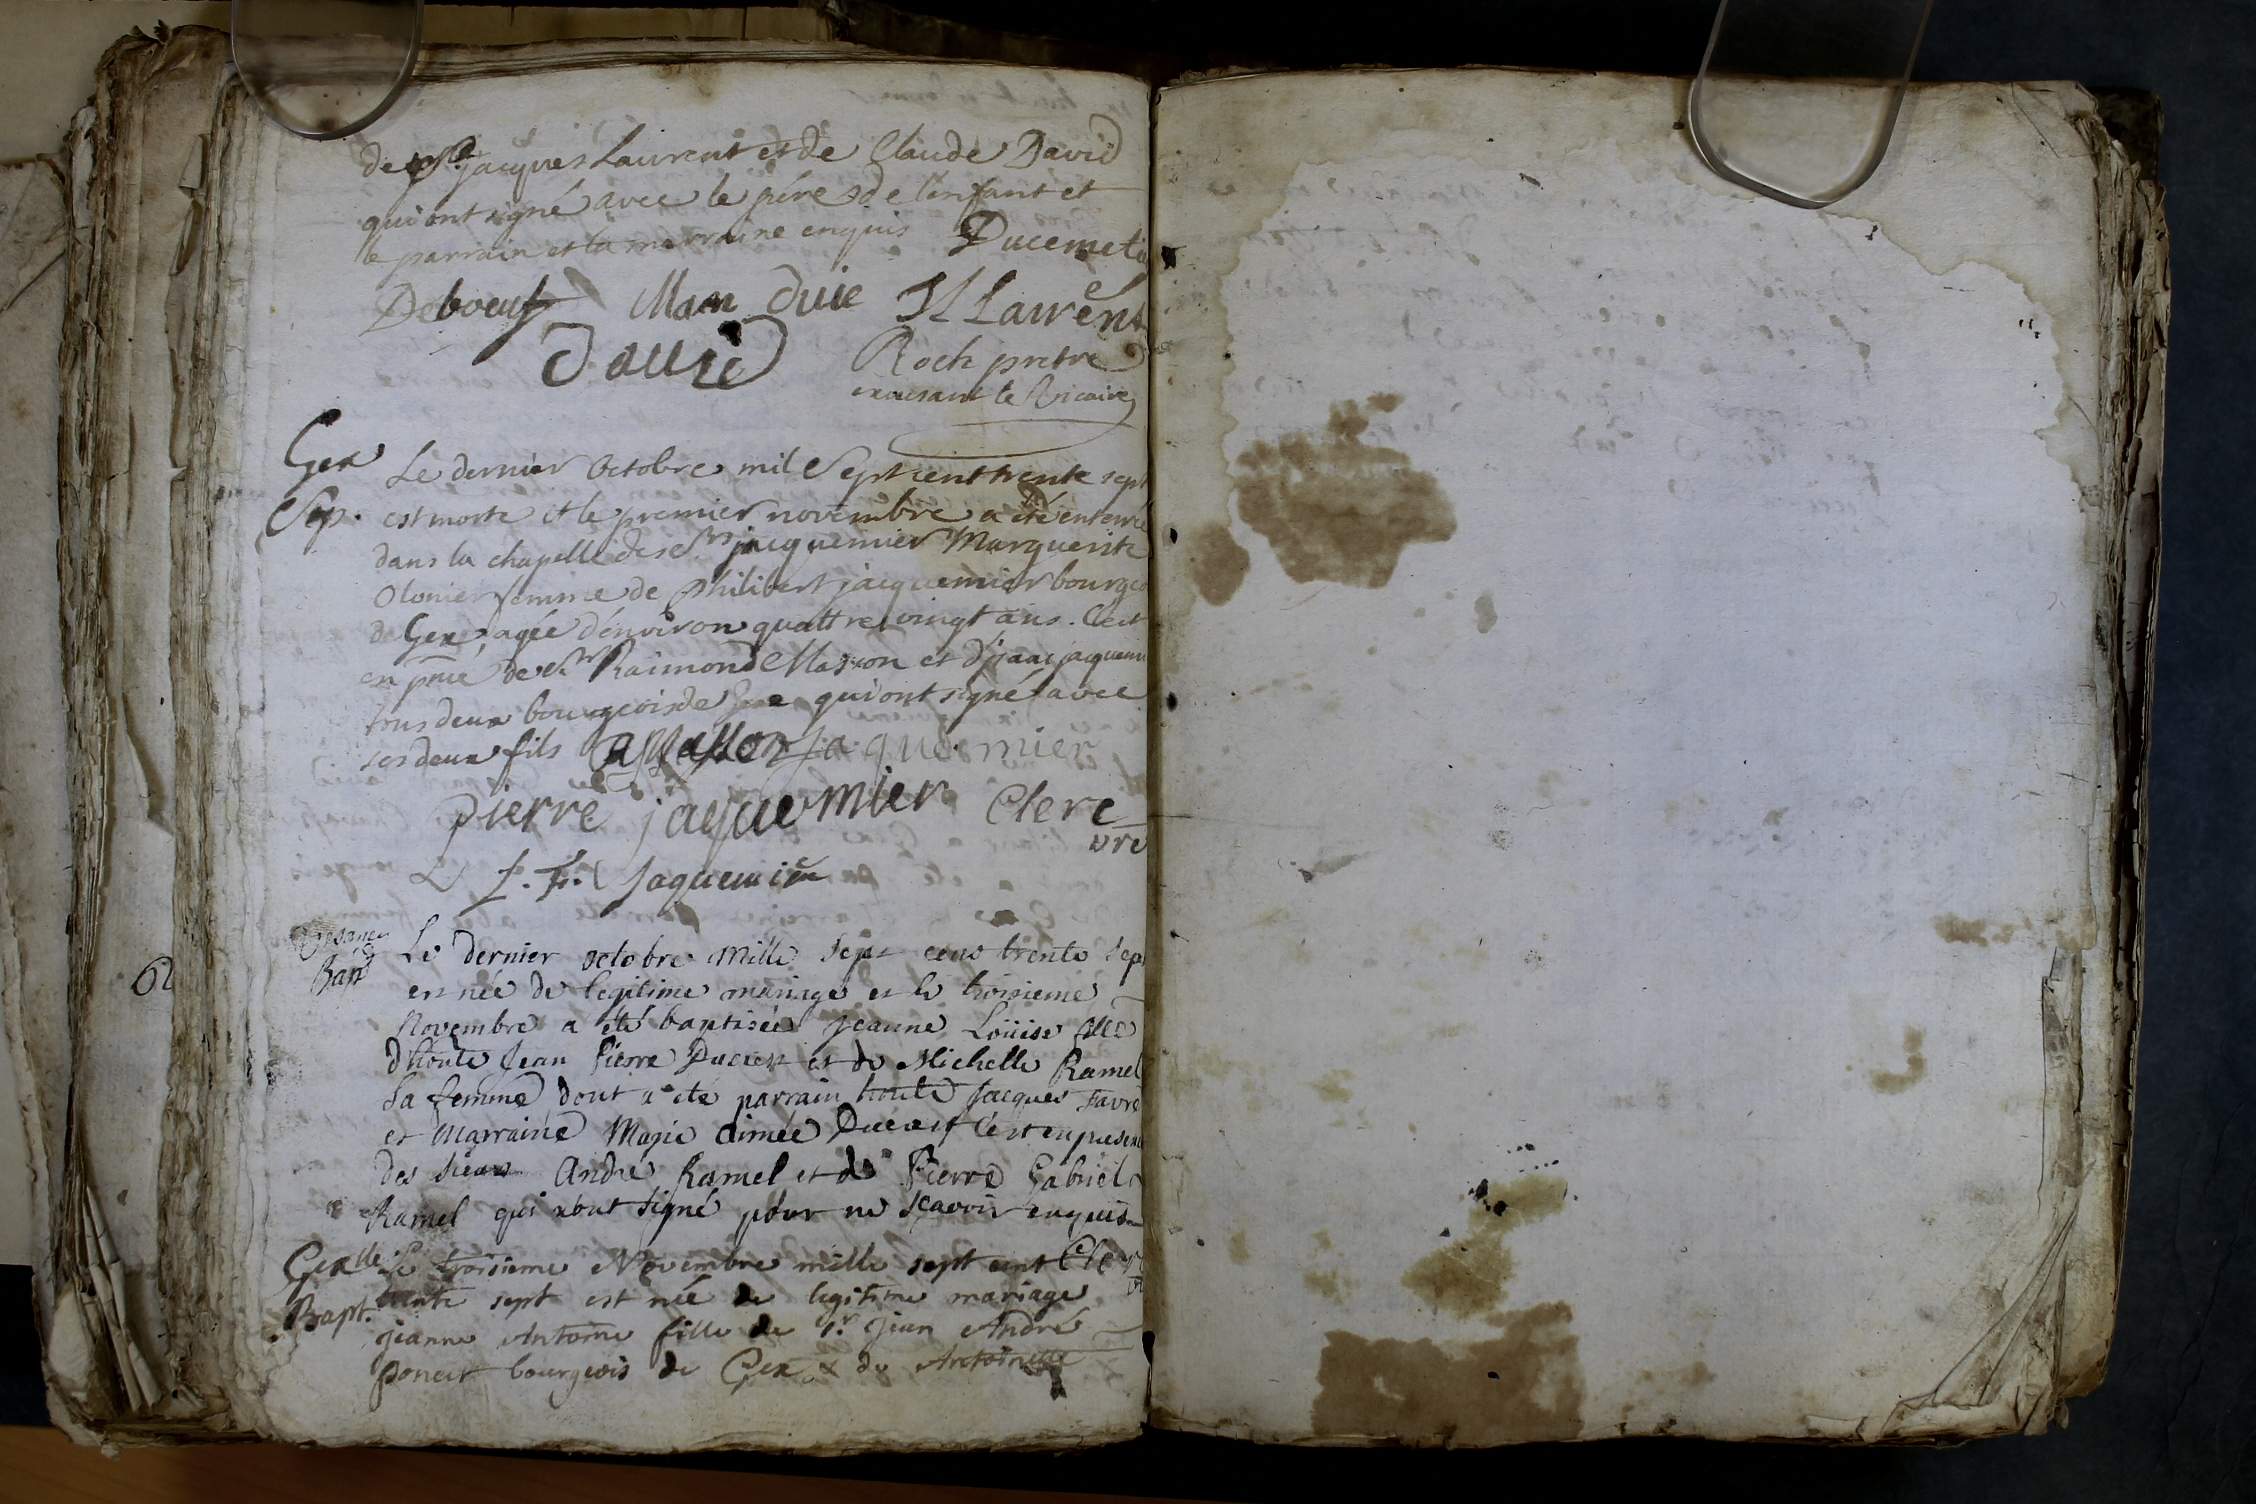 de Sr jacques Laurent et de Claude David
qui ont signé avec le pére de l'enfant et
le parrain et la marraine enquis Ducemeti
Deboeuf St Laurent
David Roch pretre
exercant le Vicaire
Gex Le dernier Octobre mil Sept cent trente sept
Sep. est morte et le premier novembre a été enterré
dans la chapelle des Srs jacquemier Marguerite
Olonier femme de Philibert jacquemier bourgeo
de Gex, agée d'environ quattre vingt ans. C'est
en pnce de Sr Raimond Masson et d'isaac jacquemi
tous deux bourgeois de Gex qui ont signé avec
ses deux fils Masson jaquemier
pierre jaquemier Clerc
vre
J. F. Jaquemier
Bapt Le dernier octobre mille sept cens trente sep
est née de legitime mariage et le troisieme
Novembre a été baptisée jeanne Loüise fille
d'honte Jean Pierre Ducrest et de Michelle Ramel
sa femme dont a été parrain honte Jacques Favre
et Marraine Marie aimée Ducrest C'est en presen
des sieurs André Ramel et de Pierre Gabriel
Ramel qui n'ont signé pour ne scavoir enquis
Gex Le troisieme Novembre mille sept cent Clerc
Bapt. trente sept est née de legitime mariage
jeanne Antoine fille de Sr jean André
poncet bourgeois de Gex & de Antoinette